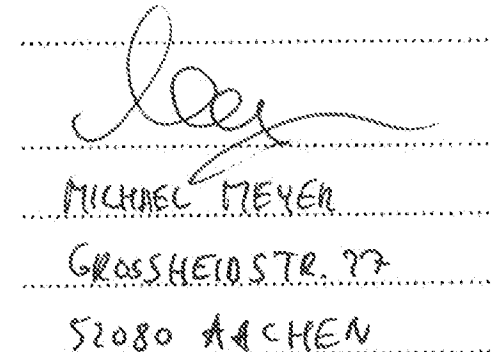 MICHAEL MEYER
GROSSHEIDSTR. 77
52080 AACHEN